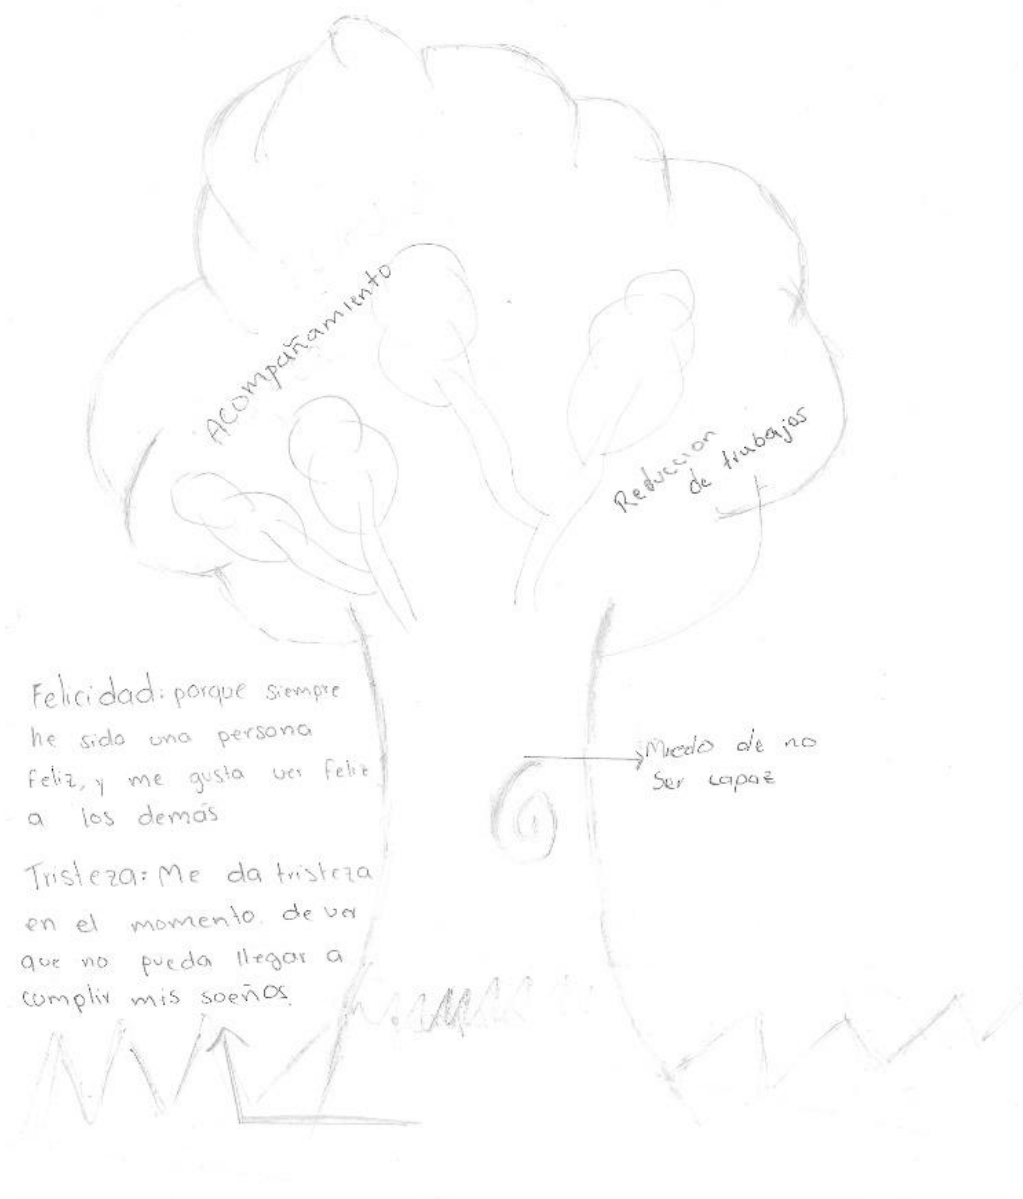 Acompañamiento
Reduccion
de trabajos
Felicidad: porque siempre
he sido una persona
feliz, y me gusta ver feliz
a los demás
Miedo de no
ser capaz
Tristeza: Me da tristeza
en el momento de ver
que no pueda llegar a
cumplir mis sueños.